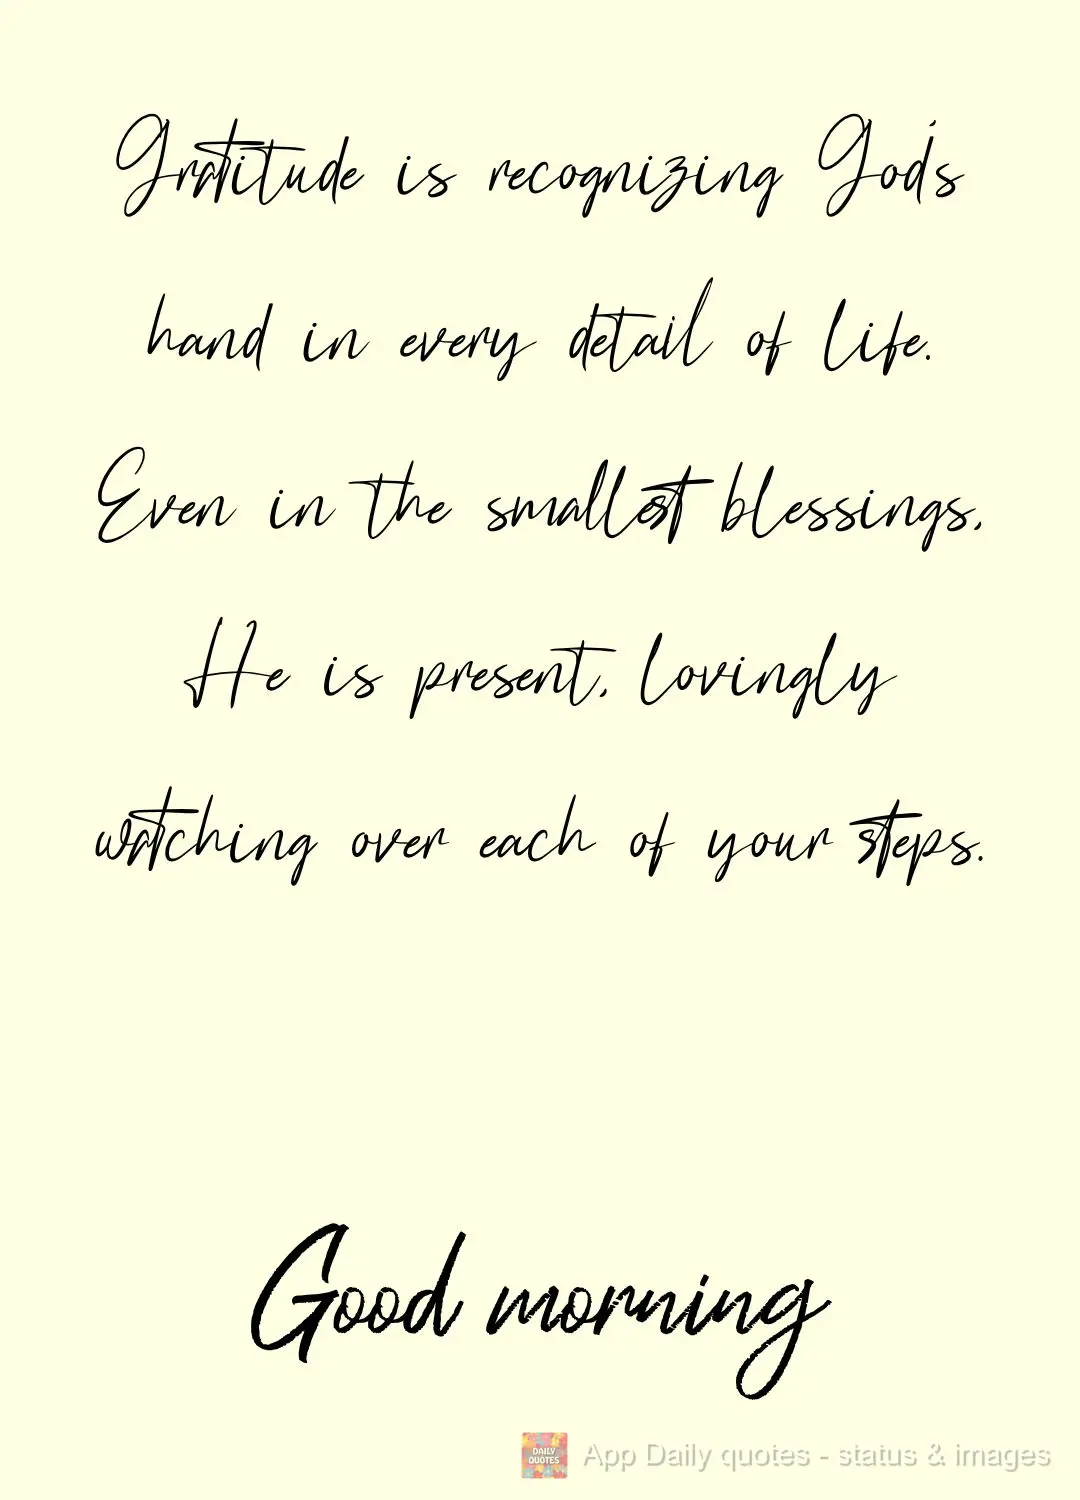 Gratitude is recognizing God's
hand in every detail of life.
Even in the smallest blessings,
He is present, lovingly
watching over each of your steps.
Good morning
DAILY
QUOTES
App Daily quotes - status & images